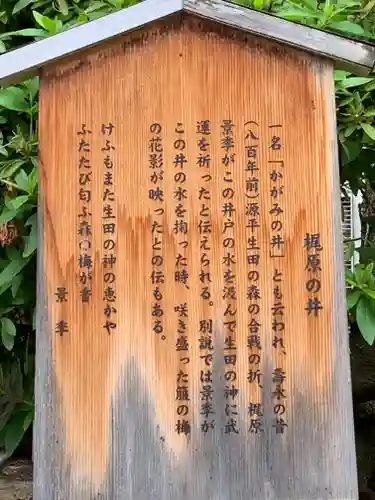 梶原の井
一名「かがみの井」とも云われ、寿永の昔
(八百年前)源平生田の森の合戦の折、梶原
景季がこの井戸の水を汲んで生田の神に武
運を祈ったと伝えられる。別説では景季が
この井の水を掬った時、咲き盛った箙の梅
の花影が映ったとの伝もある。
けふもまた生田の神の恵かや
ふたたび匂ふ森の梅が香
景季